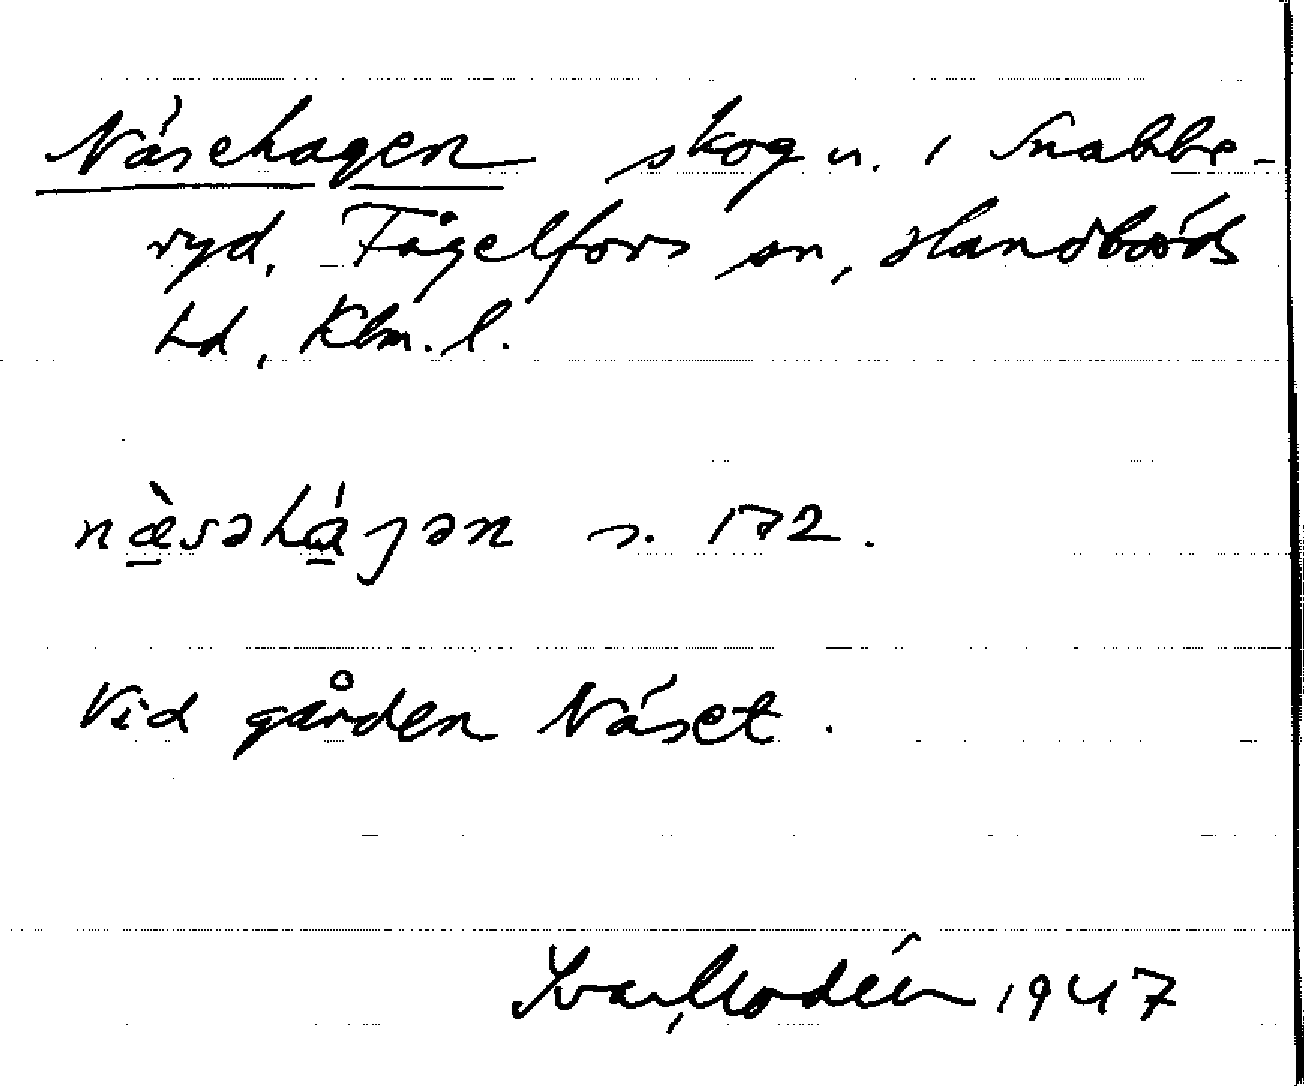 Näsehagen skog n. i Snabbe-
ryd, Fågelfors sn, Handbörds
hd, Klm. l.
næ̀səhájən s. 172.
Vid gården Näset.
Ivar Modéer 1947